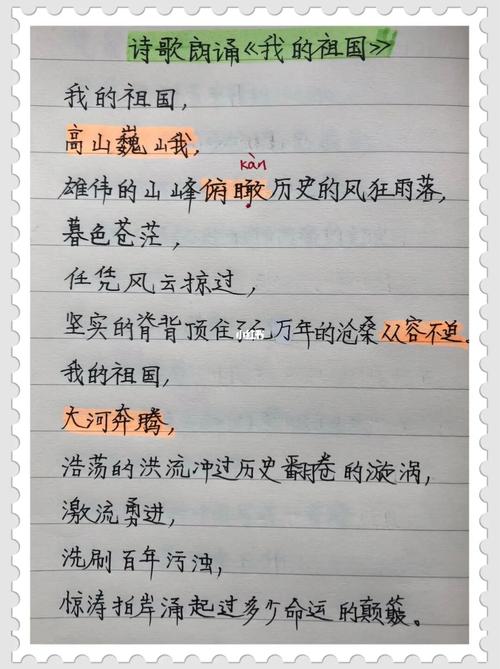 诗歌朗诵《我的祖国》
我的祖国,
高山巍峨,
kàn
雄伟的山峰俯瞰历史的风狂雨落,
暮色苍茫,
任凭风云掠过,
坚实的脊背顶住了亿万年的沧桑从容不迫。
小红书
我的祖国,
大河奔腾,
浩荡的洪流冲过历史翻卷的漩涡,
激流勇进,
洗刷百年污浊,
惊涛拍岸涌起过多少命运的颠簸。